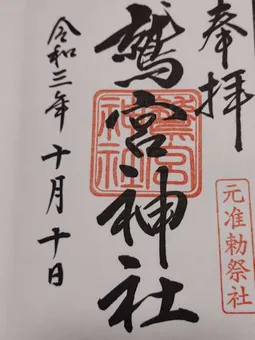 奉拝
元准勅祭社
鷲宮神社
鷲宮
神社
令和三年十月十日